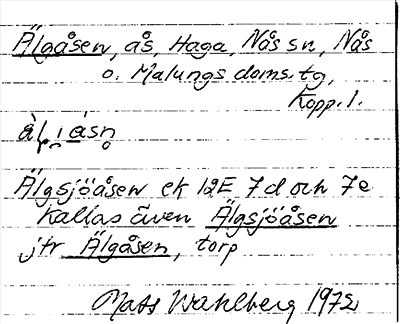 Älgåsen, ås, Haga, Nås sn, Nås
o. Malungs doms. tg,
Kopp. l.
Älgsjöåsen ek 12E 7d och 7e
Kallas även Älgsjöåsen
jfr Älgåsen, torp
Mats Wahlberg 1972